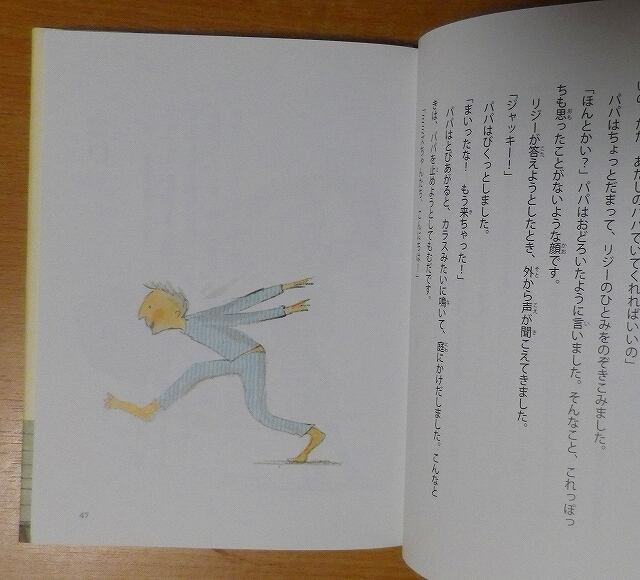 いの。ただ、あたしのパパでいてくれればいいの」
パパはちょっとだまって、リジーのひとみをのぞきこみました。
「ほんとかい？」パパはおどろいたように言いました。そんなこと、これっぽっ
ちも思ったことがないような顔です。
リジーが答えようとしたとき、外から声が聞こえてきました。
「ジャッキー！」
パパはびくっとしました。
「まいったな！　もう来ちゃった！」
パパはとびあがると、カラスみたいに鳴いて、庭にかけだしました。こんなと
きは、パパを止めようとしてもむだです。
47